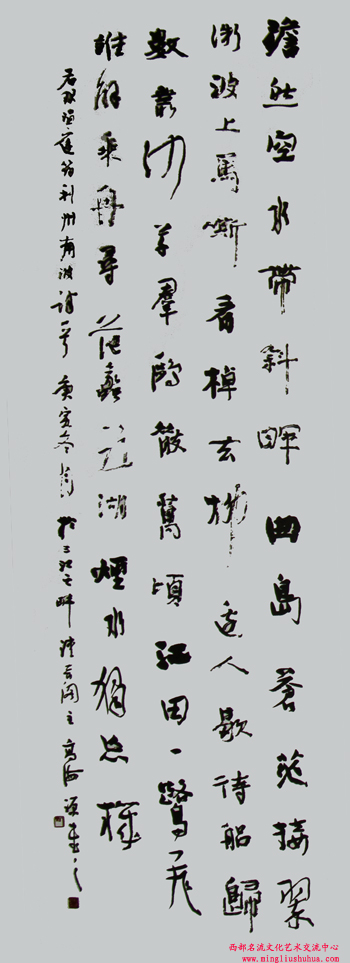 澹然空水帶斜暉曲島蒼茫接翠
微波上馬嘶看棹去柳邊人歇待船歸
數叢沙草羣鷗散萬頃江田一鷺飛
誰解乘舟尋范蠡五湖煙水獨忘機
右录温庭筠利州南渡詩一首 庚寅冬月於三江之畔 閣主高海
西部名流文化艺术交流中心
www.mingliushuhua.com